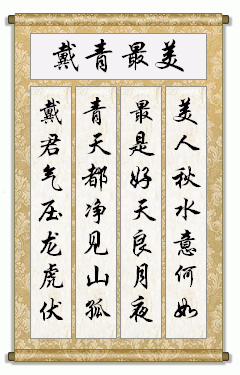 戴青最美
戴君气压龙虎伏
青天都净见山孤
最是好天良月夜
美人秋水意何如